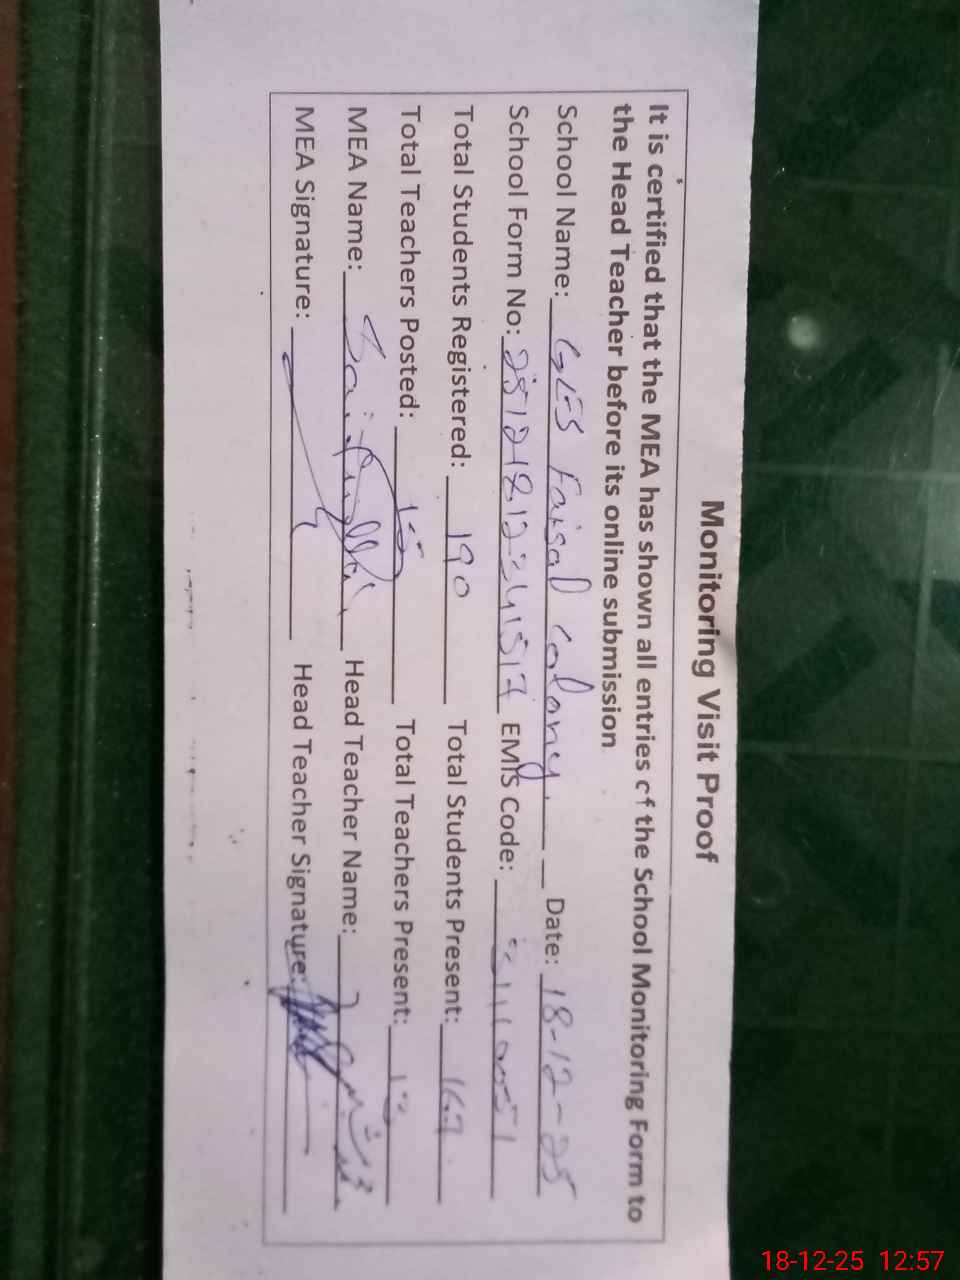 Monitoring Visit Proof
It is certified that the MEA has shown all entries of the School Monitoring Form to
the Head Teacher before its online submission
School Name: GES Faisal Colony. Date: 18-12-25
School Form No: EMIS Code:
Total Students Registered: 190 Total Students Present: 167
Total Teachers Posted: 15 Total Teachers Present: 13
MEA Name: Saif Head Teacher Name:
MEA Signature: Head Teacher Signature:
18-12-25 12:57